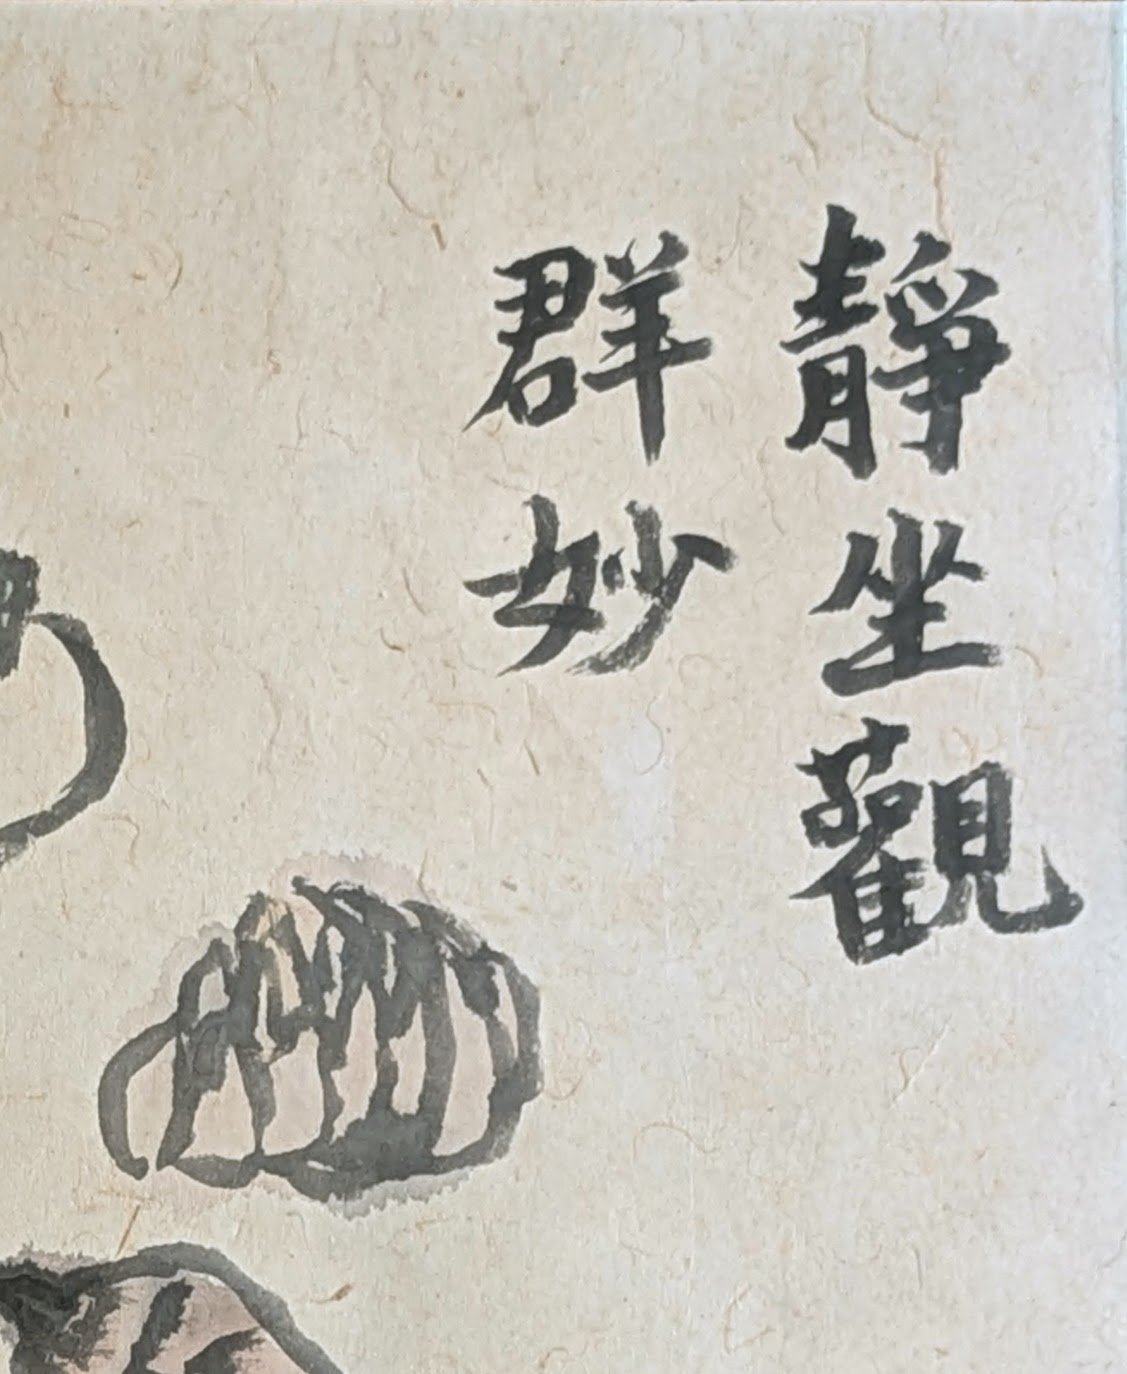 靜坐觀
群妙